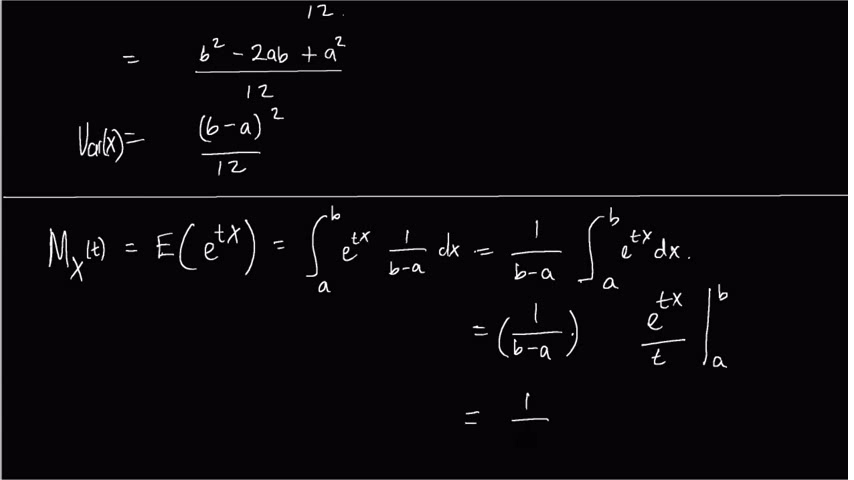 12.
= b² - 2ab + a² / 12
Var(X)= (b-a)² / 12
M_X(t) = E(e^{tX}) = ∫_a^b e^{tx} 1/(b-a) dx = 1/(b-a) ∫_a^b e^{tx} dx.
= (1/(b-a)) e^{tx}/t |_a^b
= 1/